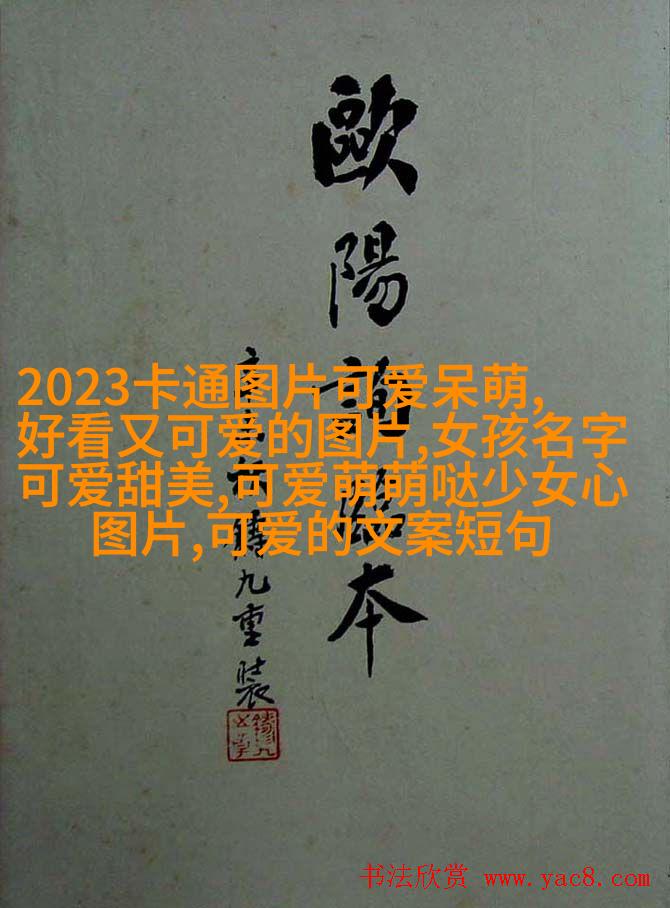 歐陽詢臨本
九重裝
2023卡通图片可爱呆萌,
好看又可爱的图片,女孩名字
可爱甜美,可爱萌萌哒少女心
图片,可爱的文案短句
书法欣赏 www.yac8.com